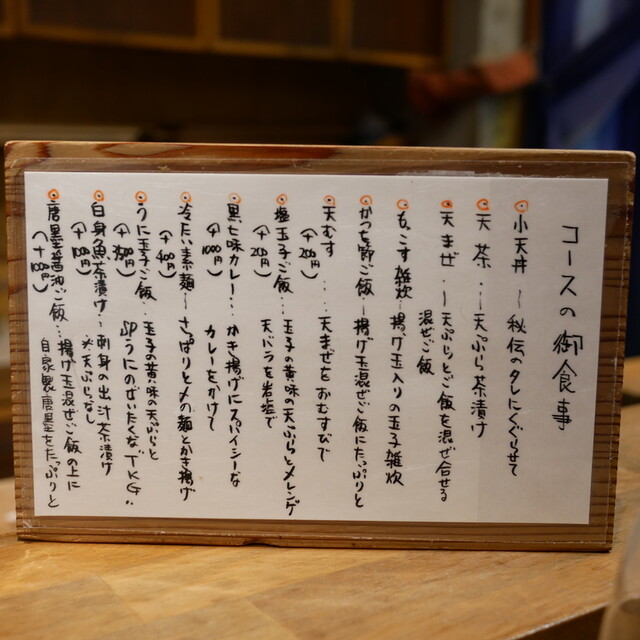 コースの御食事
小天丼 〜 秘伝のタレにくぐらせて
天茶 … 天ぷら茶漬け
天まぜ … 天ぷらとご飯を混ぜ合せる
混ぜご飯
もっこす雑炊 … 揚げ玉入りの玉子雑炊
かつを節ご飯 … 揚げ玉混ぜご飯にたっぷりと
天むす … 天まぜをおむすびで
(+200円)
塩玉子ご飯 … 玉子の黄味の天ぷらとメレンゲ
(+200円)
天バラを岩塩で
黒七味カレー … かき揚げにスパイシーな
(+1000円)
カレーをかけて
冷たい素麺 〜 さっぱりと〆の麺とかき揚げ
(+400円)
うに玉子ご飯 … 玉子の黄味の天ぷらと
円)
SPうにのぜいたくな"TKG"
白身魚茶漬け … 刺身の出汁茶漬け
(+100円)
※天ぷらなし
唐墨醤油ご飯 … 揚げ玉混ぜご飯の上に
(+1100円)
自家製唐墨をたっぷりと